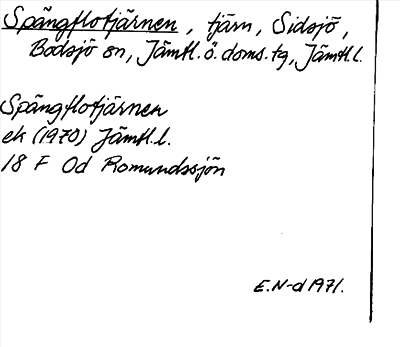 Spångflotjärnen, tjärn, Sidsjö,
Bodsjö sn, Jämtl. ö. doms. tg, Jämtl. l.
Spångflotjärnen
ek (1970) Jämtl. l.
18 F Od Romundssjön
E.N-d 1971.